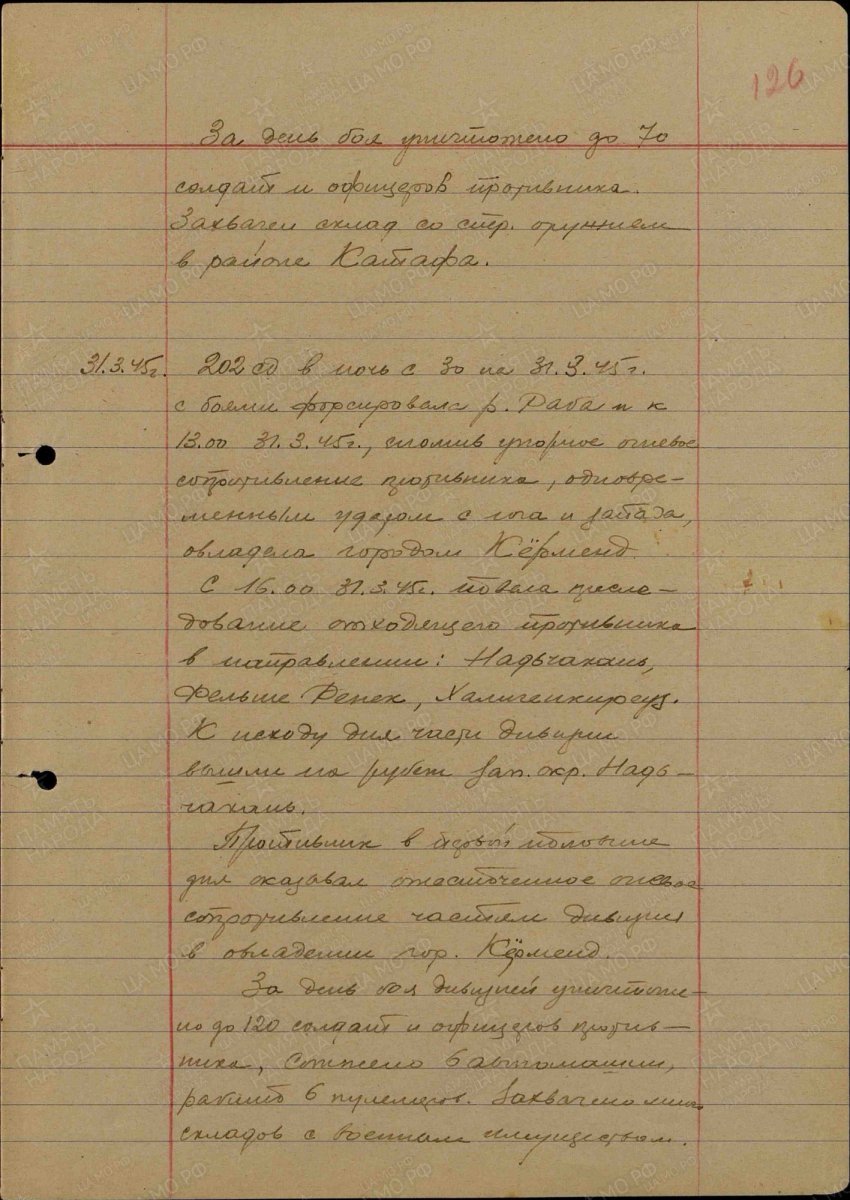 126
За день боя уничтожено до 70
солдат и офицеров противника.
Захвачен склад со стр. оружием
в районе Катафа.
31.3.45г. 202 сд в ночь с 30 на 31.3.45г.
с боями форсировала р. Раба и к
13.00 31.3.45г., сломив упорное огневое
сопротивление противника, одновре-
менным ударом с юга и запада,
овладела городом Кёрменд.
С 16.00 31.3.45г. повела пресле-
дование отходящего противника
в направлении: Надьчахань,
Фельше Рёнек, Халигенкирец.
К исходу дня части дивизии
вышли на рубеж зап. окр. Надь-
чахань.
Противник в первой половине
дня оказывал ожесточенное огневое
сопротивление частям дивизии
в овладении гор. Кёрменд.
За день боя дивизией уничтоже-
но до 120 солдат и офицеров против-
ника, сожжено 6 автомашин,
разбито 6 пулеметов. Захвачено много
складов с военным имуществом.